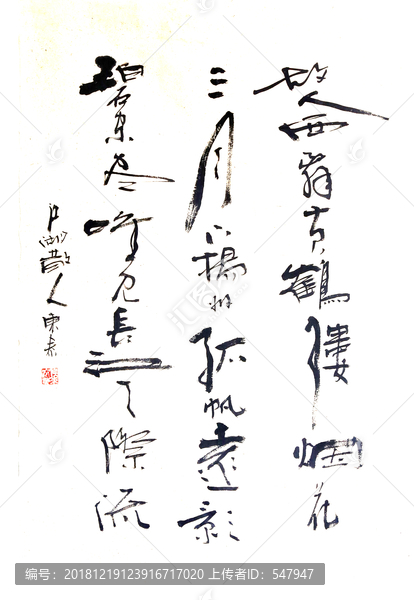 故人西辞黄鶴樓烟花
三月下揚州孤帆遠影
碧空尽唯见長江天際流
散人
编号：20181219123916717020 上传者ID：547947